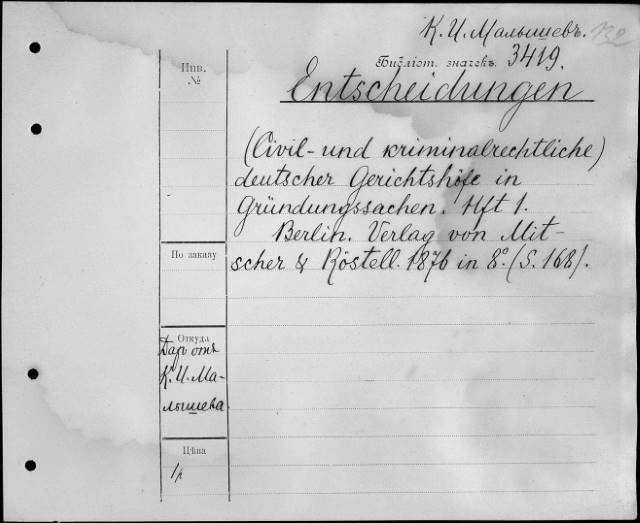 К. И. Малышевъ.
Библіот. значекъ. 3419.
Инв.
№
Entscheidungen
(Civil- und kriminalrechtliche)
deutscher Gerichtshöfe in
Gründungssachen. Hft 1.
Berlin. Verlag von Mit-
scher & Röstell. 1876 in 8º. (S. 168).
По заказу
Откуда
Даръ отъ
К. И. Ма-
лышева
Цѣна